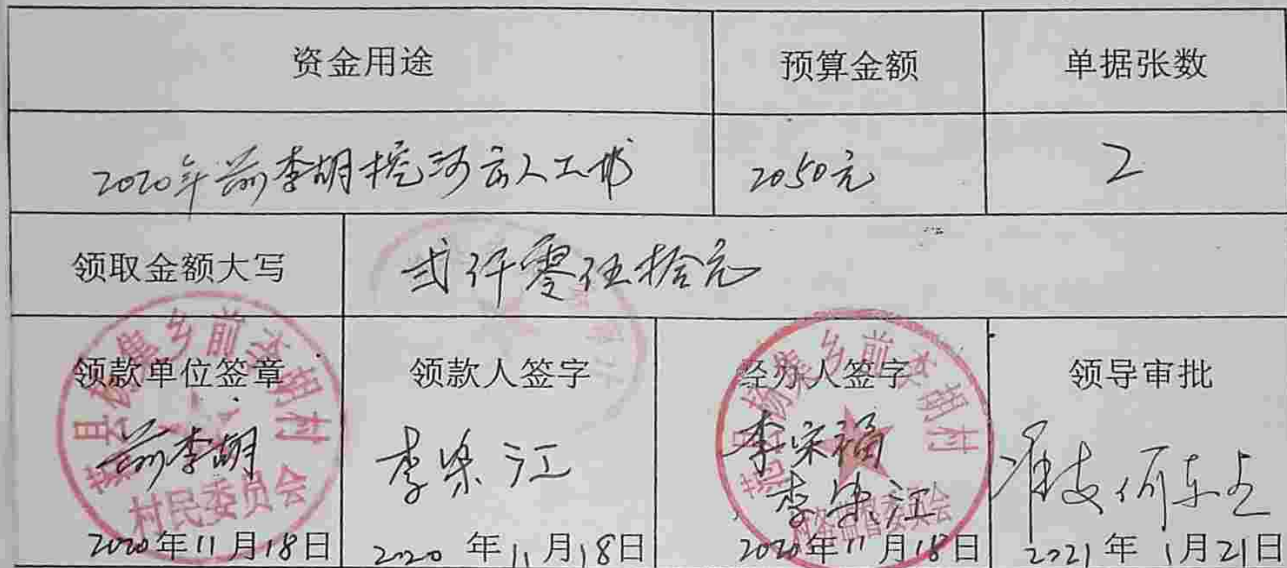 资金用途 预算金额 单据张数
2020年前李胡挖河方人工费 2050元 2
领取金额大写 弍仟零伍拾元
领款单位签章 领款人签字 经办人签字 领导审批
前李胡 李荣江 李宋福 准支
李荣江
村民委员会
2020年11月18日 2020年11月18日 2020年11月18日 2021年1月21日